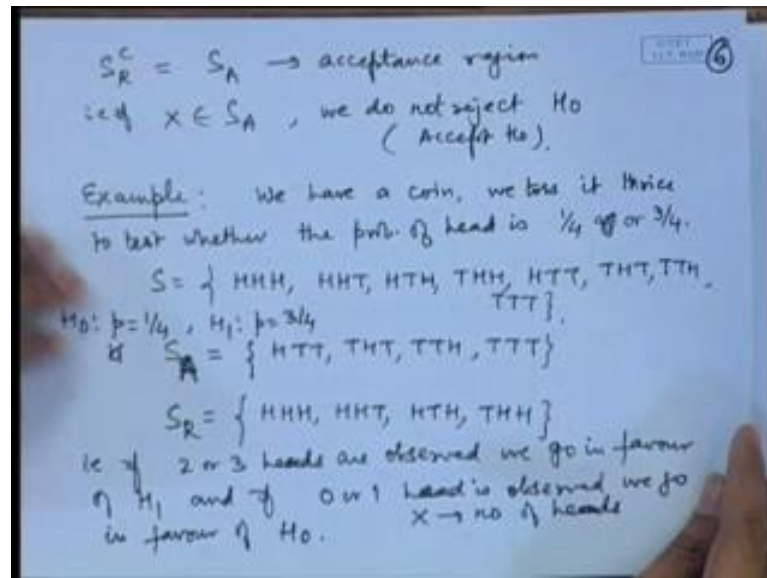 S_R^c = S_A → acceptance region
6
i.e. if x ∈ S_A, we do not reject H0
(Accept H0).
Example: We have a coin, we toss it thrice
to test whether the prob. of head is 1/4 or 3/4.
S = { HHH, HHT, HTH, THH, HTT, THT, TTH,
TTT}.
H0: p=1/4, H1: p=3/4
S_A = { HTT, THT, TTH, TTT}
S_R = { HHH, HHT, HTH, THH}
ie if 2 or 3 heads are observed we go in favour
of H1 and if 0 or 1 head is observed we go
in favour of H0.
X → no of heads